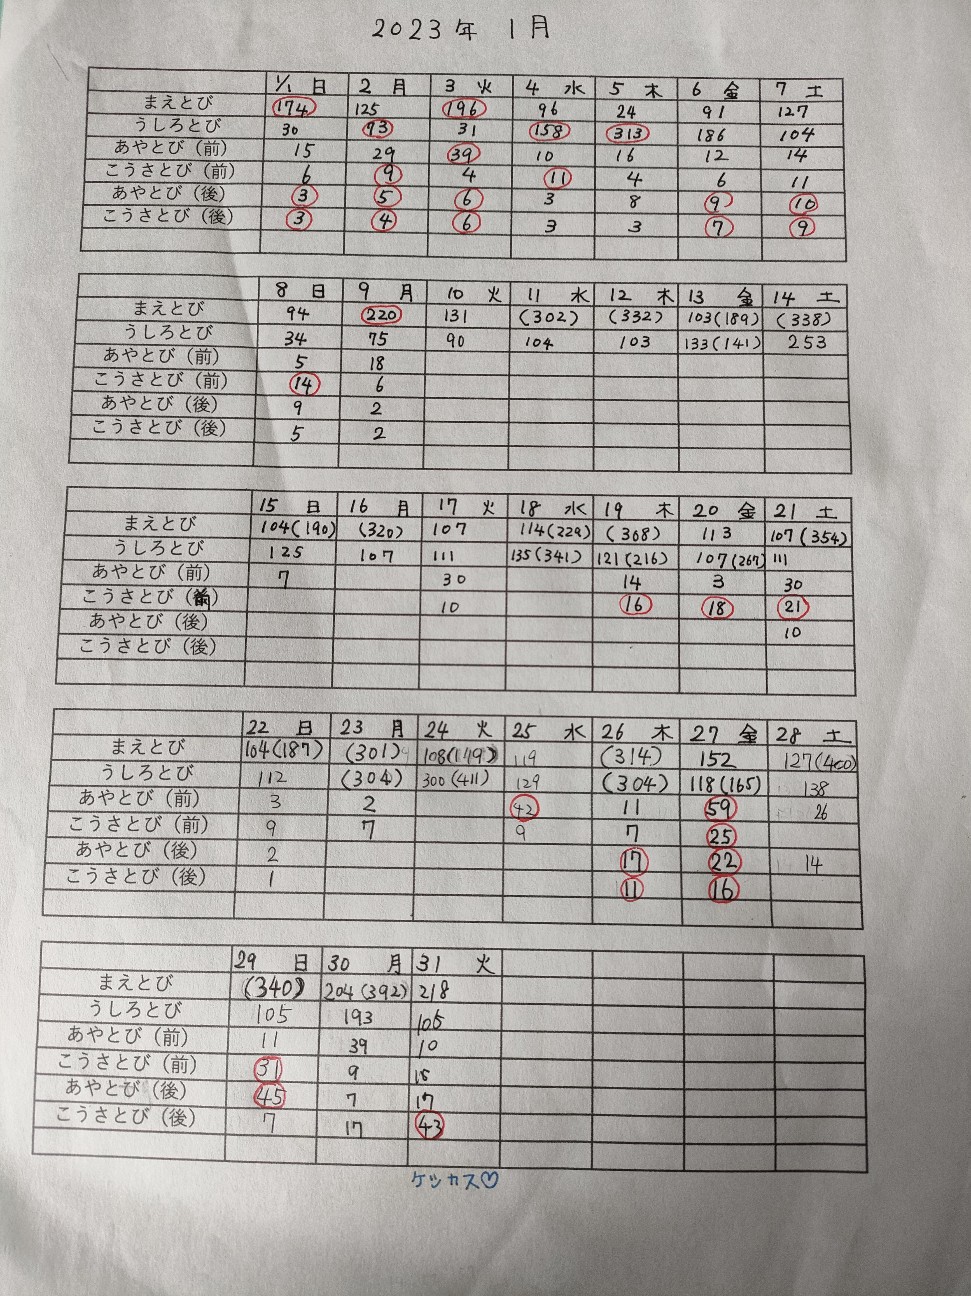 2023年 1月
1/1 日 2 月 3 火 4 水 5 木 6 金 7 土
まえとび 174 125 196 96 24 91 127
うしろとび 30 93 31 158 313 186 104
あやとび（前） 15 29 39 10 16 12 14
こうさとび（前） 6 9 4 11 4 6 11
あやとび（後） 3 5 6 3 8 9 10
こうさとび（後） 3 4 6 3 3 7 9
8 日 9 月 10 火 11 水 12 木 13 金 14 土
まえとび 94 220 131 (302) (332) 103(189) (338)
うしろとび 34 75 90 104 103 133(141) 253
あやとび（前） 5 18
こうさとび（前） 14 6
あやとび（後） 9 2
こうさとび（後） 5 2
15 日 16 月 17 火 18 水 19 木 20 金 21 土
まえとび 104(190) (320) 107 114(229) (308) 113 107(354)
うしろとび 125 107 111 135(341) 121(216) 107(267) 111
あやとび（前） 7 30 14 3 30
こうさとび（前） 10 16 18 21
あやとび（後） 10
こうさとび（後）
22 日 23 月 24 火 25 水 26 木 27 金 28 土
まえとび 104(187) (301) 108(149) 119 (314) 152 127(400)
うしろとび 112 (304) 300(411) 129 (304) 118(165) 138
あやとび（前） 3 2 42 11 59 26
こうさとび（前） 9 7 9 7 25
あやとび（後） 2 17 22 14
こうさとび（後） 1 11 16
29 日 30 月 31 火
まえとび (340) 204(392) 218
うしろとび 105 193 105
あやとび（前） 11 39 10
こうさとび（前） 31 9 18
あやとび（後） 45 7 17
こうさとび（後） 7 17 43
ケツカス♡